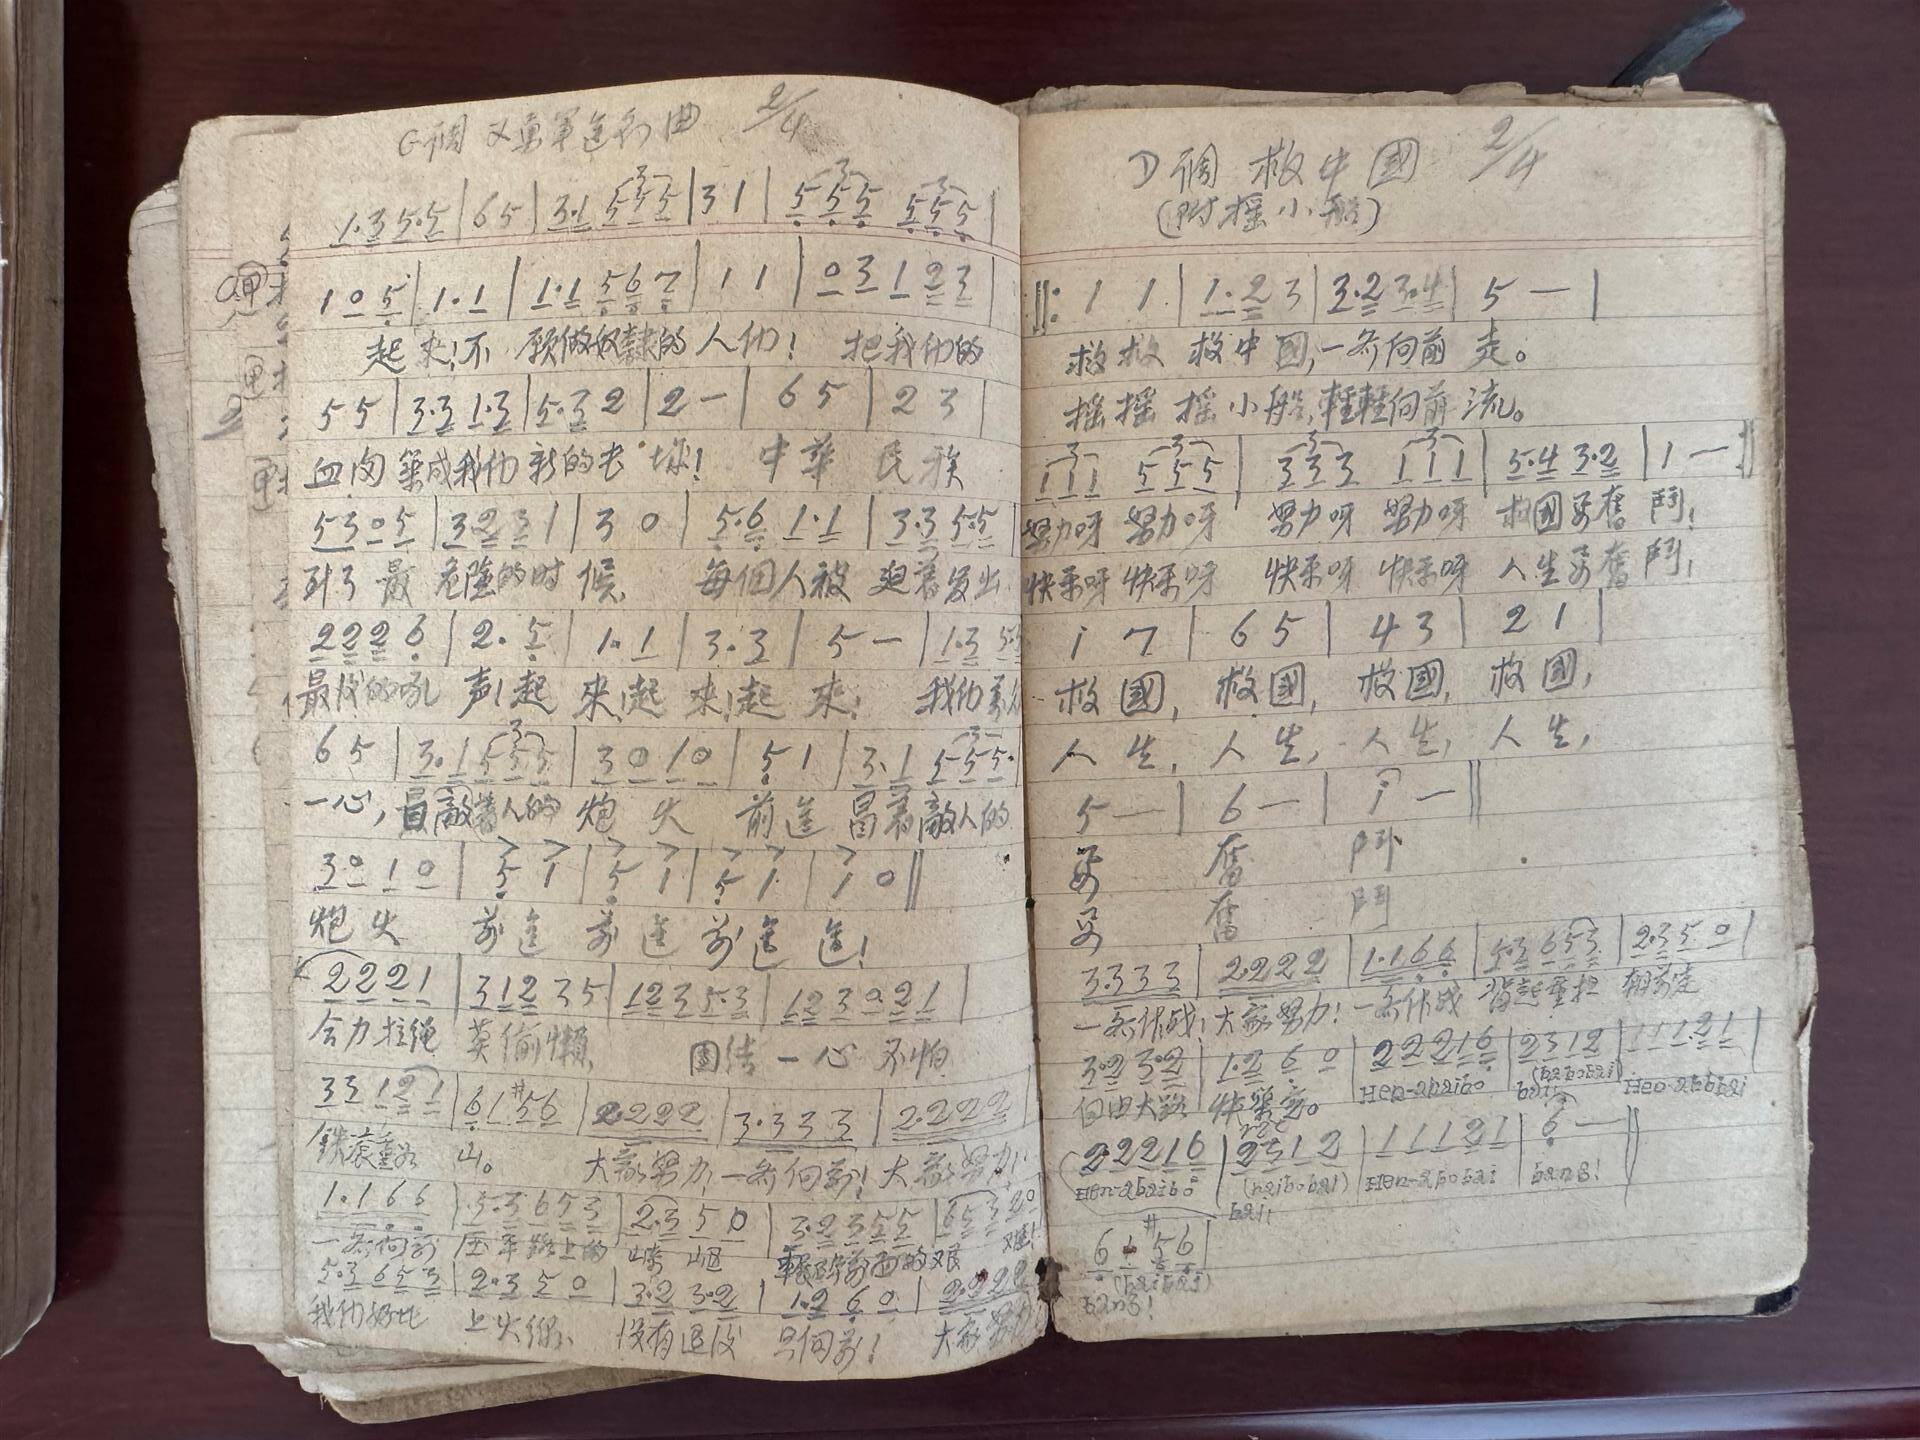 G調 义勇軍進行曲 2/4
1·3 5·5 | 6 5 | 3·1 5 5 5 | 3 1 | 5 5 5 5 5 5 |
1 0 5 | 1·1 | 1·1 5 6 7 | 1 1 | 0 3 1 2 3 |
起來!不 願做奴隸的 人们! 把我们的
5 5 | 3·3 1·3 | 5·3 2 | 2 — | 6 5 | 2 3 |
血肉 築成我们 新的长 城! 中華 民族
5 3 0 5 | 3 2 3 1 | 3 0 | 5·6 1·1 | 3·3 5·5 |
到了 最 危險的时 候, 每個人被 迫着发出
2 2 2 6 | 2·5 | 1·1 | 3·3 | 5 — | 1·3 5·5
最后的吼 声!起 來!起 來!起 來! 我们万众
6 5 | 3·1 5 5 5 | 3 0 1 0 | 5 1 | 3·1 5 5 5·
一心, 冒敵着人的 炮 火 前進 冒着敵人的
3 0 1 0 | 5 1 | 5 1 | 5 1 | 1 0 ‖
炮火 前進 前進 前進 進!
2 2 2 1 | 3 1 2 3 5 | 1 2 3 5·3 | 1 2 3 0 2 1 |
合力拉绳 莫偷懶, 團结一心 不怕
3 3 1 2 1 | 6 1 #5 6 | 2·2 2 2 | 3·3 3 3 | 2·2 2 2
鉄滾重如 山。 大家努力,一齐向前!大家努力!
1·1 6 6 | 5·3 6 5 3 | 2·3 5 0 | 3·2 3 5 5 | 6 5 3 2 0
一齐向前 压平路上的 崎岖 輾碎前面的艰 难!
5·3 6 5 3 | 2·3 5 0 | 3·2 3·2 | 1·2 6 0 | 2·2 2 2
我们好比 上火线、 没有退后 只向前! 大家努力
D調 救中國 2/4
(附摇小船)
‖: 1 1 | 1·2 3 | 3·2 3·4 | 5 — |
救救 救中國,一齐向前 走。
摇摇 摇小船,輕輕向前 流。
1 1 1 5 5 5 | 3 3 3 1 1 1 | 5·4 3·2 | 1 — :‖
努力呀 努力呀 努力呀 努力呀 救國要奮 鬥!
快樂呀 快樂呀 快樂呀 快樂呀 人生要奮 鬥,
i 7 | 6 5 | 4 3 | 2 1 |
救國, 救國, 救國, 救國,
人生, 人生, 人生, 人生,
5 — | 6 — | i — ‖
要 奮 鬥
要 奮 鬥
3·3 3 3 | 2·2 2 2 | 1·1 6 6 | 5·3 6 5 3 | 2·3 5 0 |
一齐作战!大家努力!一齐作战 背起重担 朝前走
3·2 3·2 | 1·2 6 0 | 2 2 2 1 6 | 2 3 1 2 | 1 1 1·2 1 |
自由大路 快築完。 Hen-abaibo bai (haibobai) Heo-abobai
2 2 2 1 6 | 2 3 1 2 | 1 1 1 2 1 | 6 — ‖
Hen-abaibo bai! (haibobai) Hen-abobai bang!
6 1 #5 6 |
(baibai)
bang!